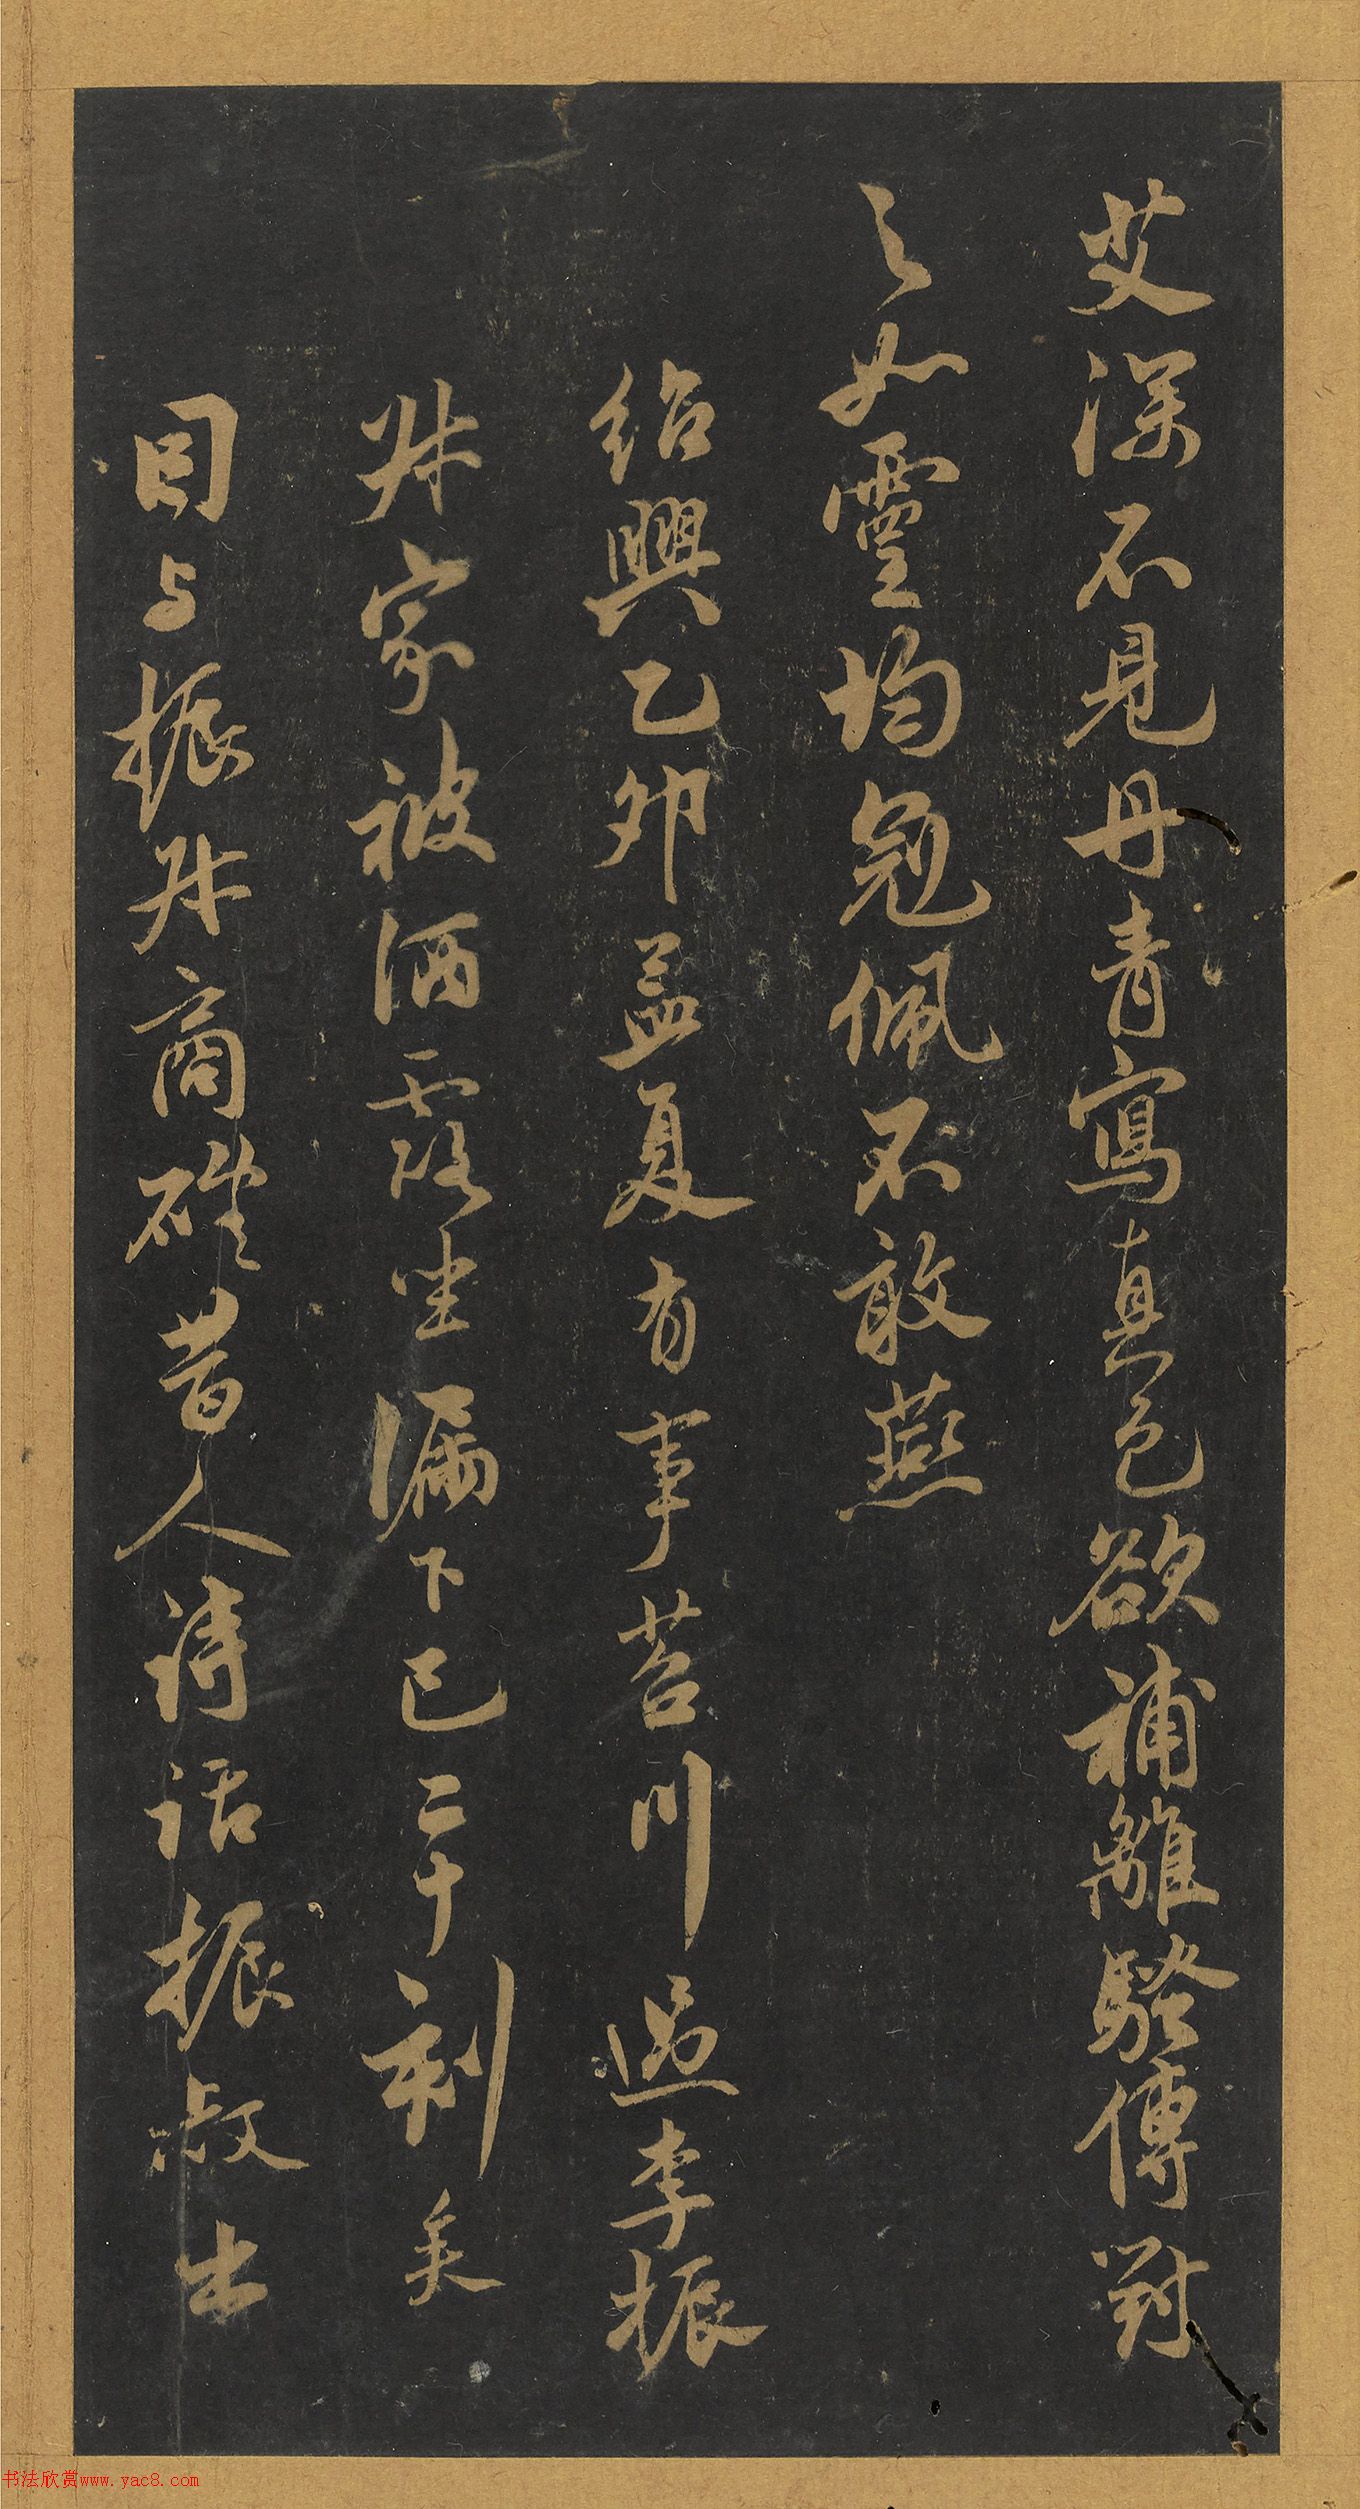 艾深不見丹青寫真色欲補離騷傳對
之如靈均冠佩不敢燕
紹興乙卯孟夏有事苕川過李振
叔家被酒露坐漏下已二十刻矣
因与振叔商礭昔人詩話振叔出
书法欣赏www.yac8.com